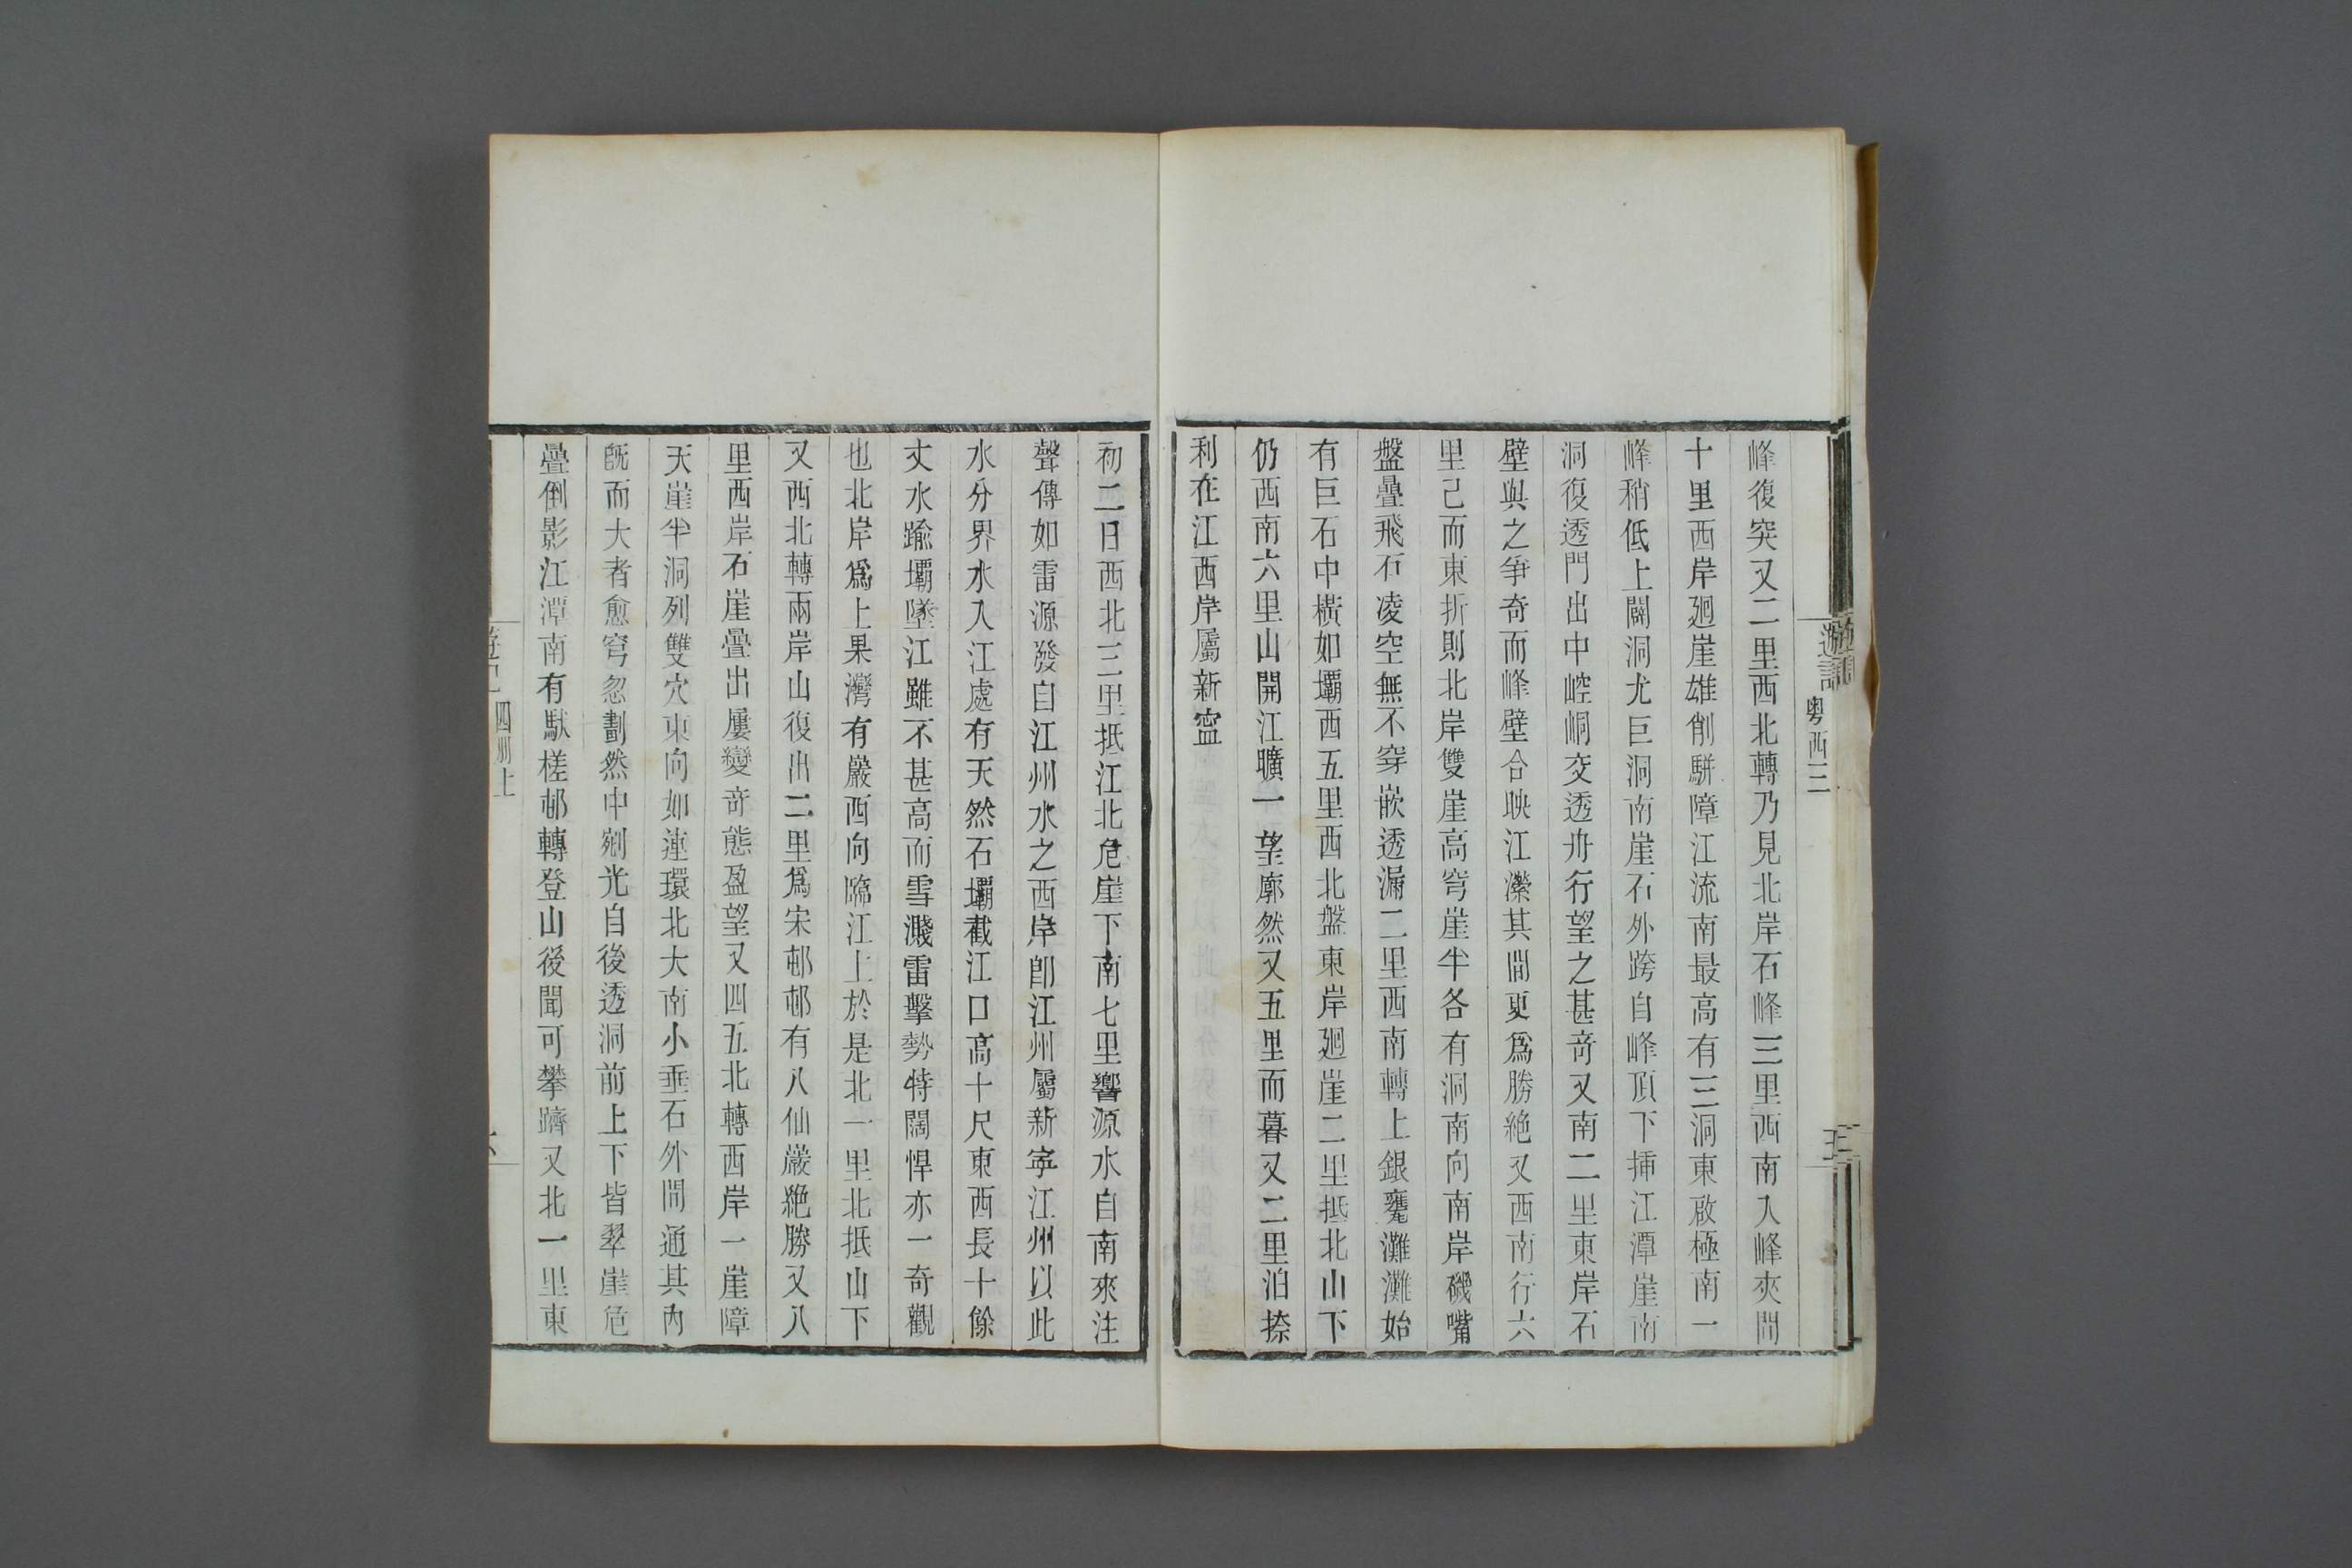 遊記
粤西三
峰復突又二里西北轉乃見北岸石峰三里西南入峰夾間
十里西岸𢌞崖雄削駢障江流南最高有三洞東啟極南一
峰稍低上闢洞尤巨洞南崖石外跨自峰頂下揷江潭崖南
洞復透門出中崆峒交透舟行望之甚竒又南二里東岸石
壁與之爭奇而峰壁合映江瀠其間更爲勝絶又西南行六
里己而東折則北岸雙崖高穹崖半各有洞南向南岸磯嘴
盤疊飛石凌空無不穿嵌透漏二里西南轉上銀甕灘灘始
有巨石中橫如壩西五里西北盤東岸𢌞崖二里抵北山下
仍西南六里山開江曠一望廓然又五里而暮又二里泊捺
利在江西岸屬新寍
初二日西北三里抵江北危崖下南七里響源水自南來注
聲傳如雷源發自江州水之西岸卽江州屬新寧江州以此
水分界水入江處有天然石壩截江口高十尺東西長十餘
丈水踰壩墜江雖不甚高而雪濺雷擊勢特闊悍亦一奇觀
也北岸爲上果灣有巖西向臨江上於是北一里北抵山下
又西北轉兩岸山復出二里爲宋邨邨有八仙巖絶勝又八
里西岸石崖疊出屢變竒態盈望又四五北轉西岸一崖障
天崖半洞列雙穴東向如連環北大南小垂石外間通其內
旣而大者愈穹忽劃然中剜光自後透洞前上下皆翠崖危
疊倒影江潭南有馱槎邨轉登山後聞可攀躋又北一里東
遊記
四册上